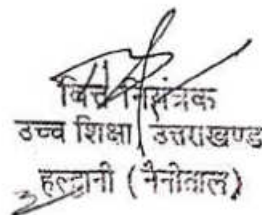 वित्त नियंत्रक
उच्च शिक्षा उत्तराखण्ड
हल्द्वानी (नैनीताल)